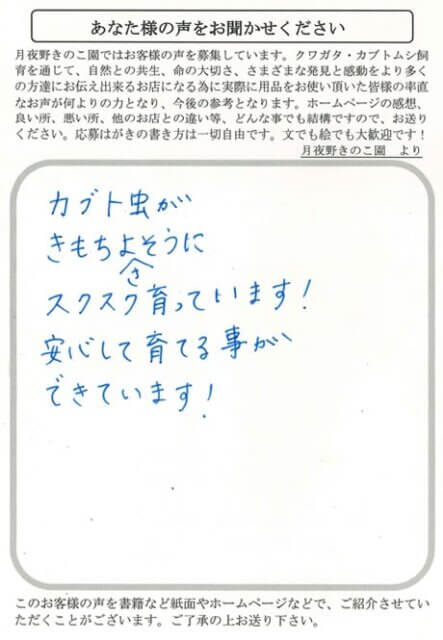 あなた様の声をお聞かせください
月夜野きのこ園ではお客様の声を募集しています。クワガタ・カブトムシ飼
育を通じて、自然との共生、命の大切さ、さまざまな発見と感動をより多く
の方達にお伝え出来るお店になる為に実際に用品をお使い頂いた皆様の率直
なお声が何よりの力となり、今後の参考となります。ホームページの感想、
良い所、悪い所、他のお店との違い等、どんな事でも結構ですので、お送り
ください。応募はがきの書き方は一切自由です。文でも絵でも大歓迎です！
月夜野きのこ園 より
カブト虫が
きもちよさそうに
スクスク育っています！
安心して育てる事が
できています！
このお客様の声を書籍など紙面やホームページなどで、ご紹介させてい
ただくことがございます。ご了承の上お送り下さい。